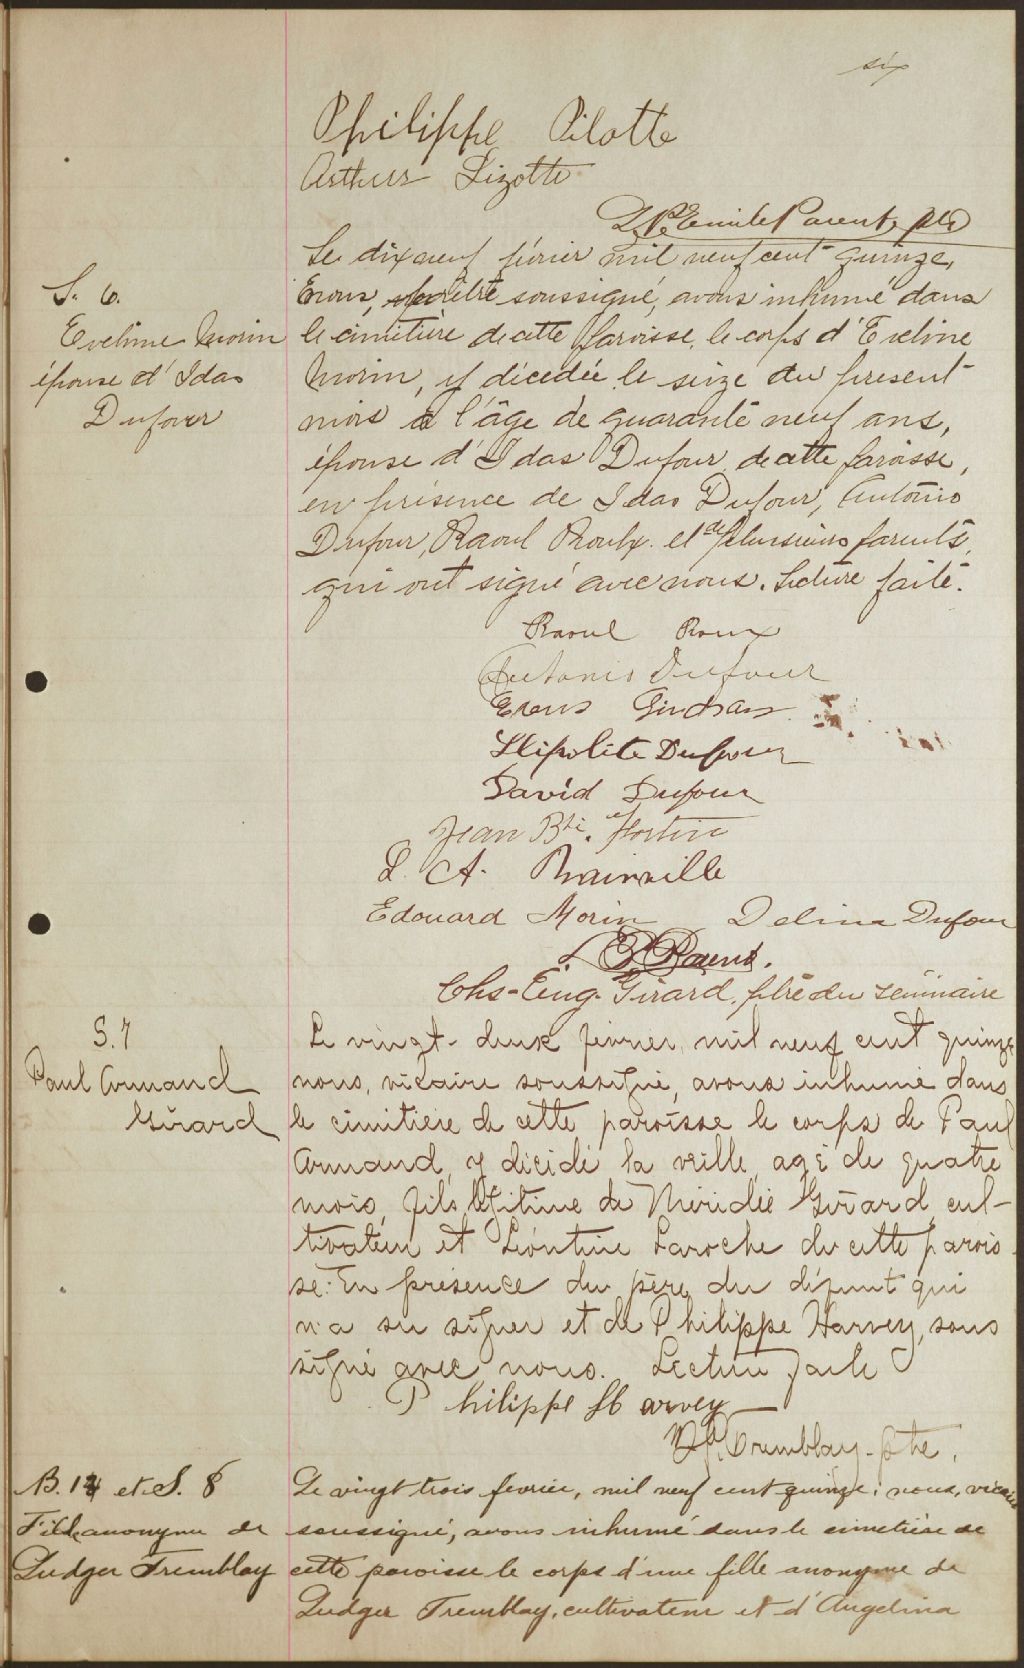 six
Philippe Pilotte
Arthur Lizotte
Emile Parent, ptre
Le dix neuf février mil neuf cent quinze,
S. 6.
nous, prêtre soussigné, avons inhumé dans
Eveline Morin
le cimitière de cette paroisse, le corps d'Eveline
épouse d'Idas
Morin, y décédée le seize du présent
Dufour
mois à l'âge de quarante neuf ans,
épouse d'Idas Dufour de cette paroisse,
en présence de Idas Dufour, Antonio
Dufour, Raoul Roulx et de plusieurs parents,
qui ont signé avec nous. Lecture faite.
Raoul Roux
Antonio Dufour
Hipolite Dufour
David Dufour
Jean Bte. Fortin
L. A. Rainville
Edouard Morin Delina Dufour
Parent.
Chs-Eug. Girard, ptre du séminaire
S. 7
Le vingt-deux février, mil neuf cent quinze
Paul Armand
nous, vicaire soussigné, avons inhumé dans
Girard
le cimitière de cette paroisse le corps de Paul
Armand, y décidé la veille, agé de quatre
mois, fils légitime de Méridée Girard cul-
tivateur et Léontine Laroche de cette parois-
se. En présence du père du défunt qui
n'a su signer et de Philippe Harvey, sous
signé avec nous. Lecture faite
Philippe Harvey
Tremblay ptre.
B. 14 et S. 8
Le vingt trois février, mil neuf cent quinze, nous, vicaire
Fille anonyme de
soussigné, avons inhumé dans le cimetière de
Ludger Tremblay
cette paroisse le corps d'une fille anonyme de
Ludger Tremblay, cultivateur et d'Angelina